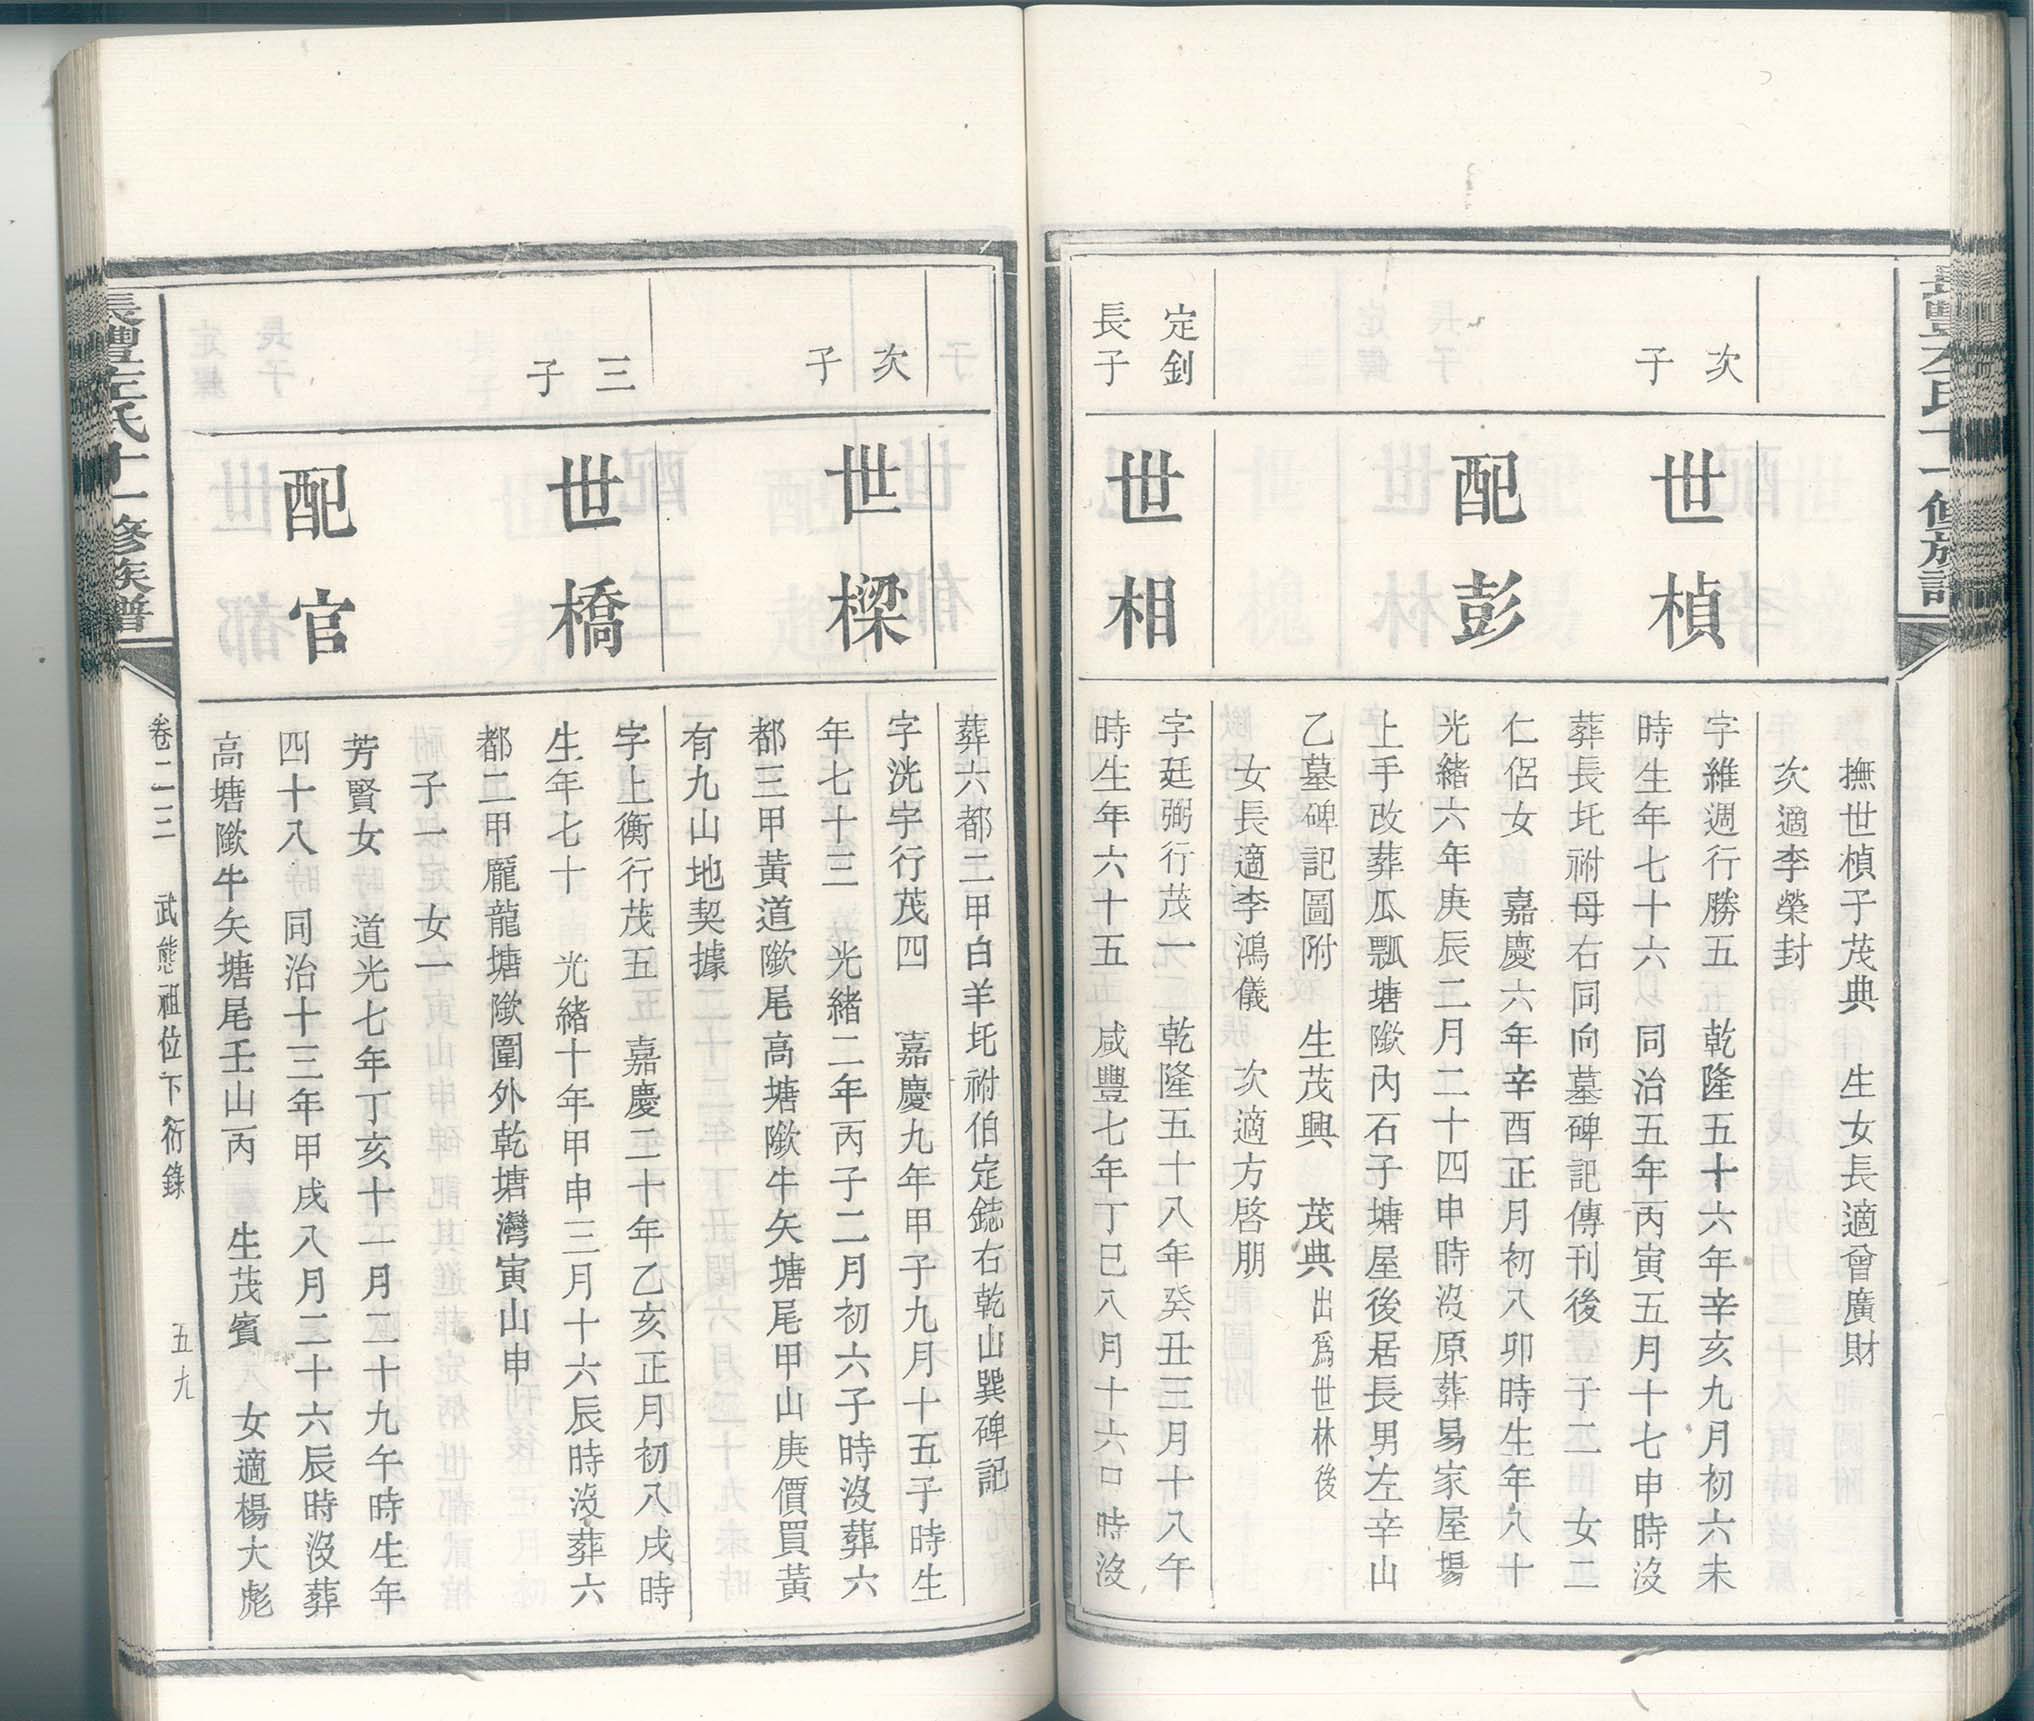 撫世楨子茂典　生女長適曾廣財
次適李榮封
次子
世楨
字維週行勝五　乾隆五十六年辛亥九月初六未
時生年七十六　同治五年丙寅五月十七申時沒
葬長圫祔母右同向墓碑記傳刊後　子二　女二
配彭
仁侶女　嘉慶六年辛酉正月初八卯時生年八十
光緒六年庚辰二月二十四申時沒原葬易家屋場
上手改葬瓜瓢塘㙤內石子塘屋後居長男左辛山
乙墓碑記圖附　生茂興　茂典出爲世林後
女長適李鴻儀　次適方啓朋
定釗
長子
世相
字廷弼行茂一　乾隆五十八年癸丑三月十八午
時生年六十五　咸豐七年丁巳八月十六口時沒
葬六都二甲白羊圫祔伯定鋕右乾山巽碑記
次子
世樑
字洸宇行茂四　嘉慶九年甲子九月十五子時生
年七十三　光緒二年丙子二月初六子時沒葬六
都三甲黃道㙤尾高塘㙤牛矢塘尾甲山庚價買黃
有九山地契據
三子
世橋
字上衡行茂五　嘉慶二十年乙亥正月初八戌時
生年七十　光緒十年甲申三月十六辰時沒葬六
都二甲龐龍塘㙤圍外乾塘灣寅山申
子一　女一
配官
芳賢女　道光七年丁亥十一月二十九午時生年
四十八　同治十三年甲戌八月二十六辰時沒葬
高塘㙤牛矢塘尾壬山丙　生茂賓　女適楊大彪
長豐左氏十一修族譜
卷二三　武態祖位下衍錄　五九